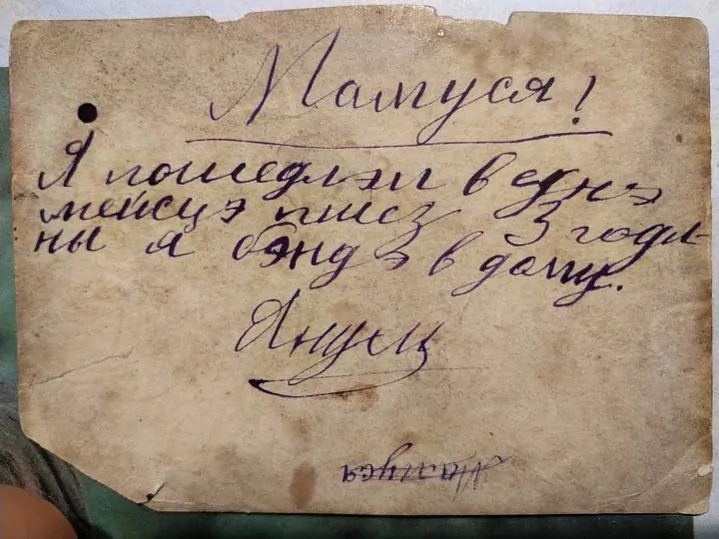 Мамуся!
Я пошедлэм в еднэ
мейсцэ пшез 3 годи-
ны я бэндэ в дому.
Янусь
Мамуся